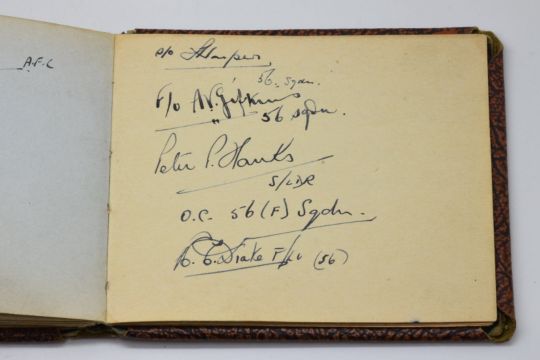 A.F.C
P/O
56. Sqdn.
F/O
" 56 sqdn.
Peter P. Hanks
S/LDR
O.C. 56 (F) Sqdn.
Drake F/Lt (56)